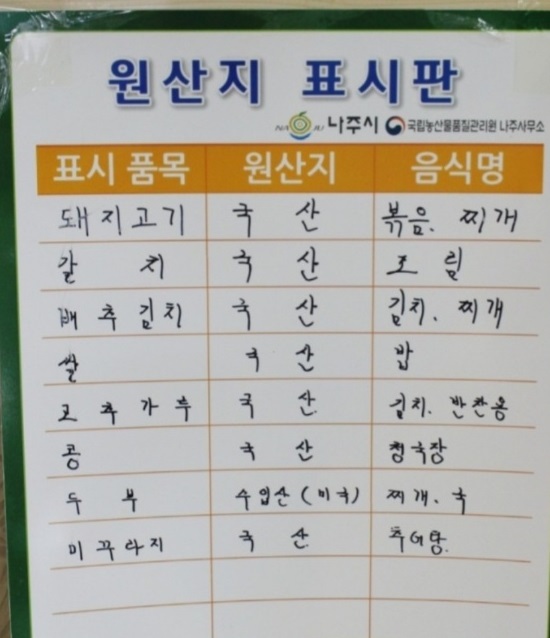 원산지 표시판
NAJU 나주시 국립농산물품질관리원 나주사무소
표시 품목 원산지 음식명
돼지고기 국 산 볶음. 찌개
갈 치 국 산 조 림
배 추 김 치 국 산 김치. 찌개
쌀 국 산 밥
고 추 가 루 국 산 김치. 반찬용
콩 국 산 청국장
두 부 수입산 (미국) 찌개. 국
미 꾸 라 지 국 산 추어탕.